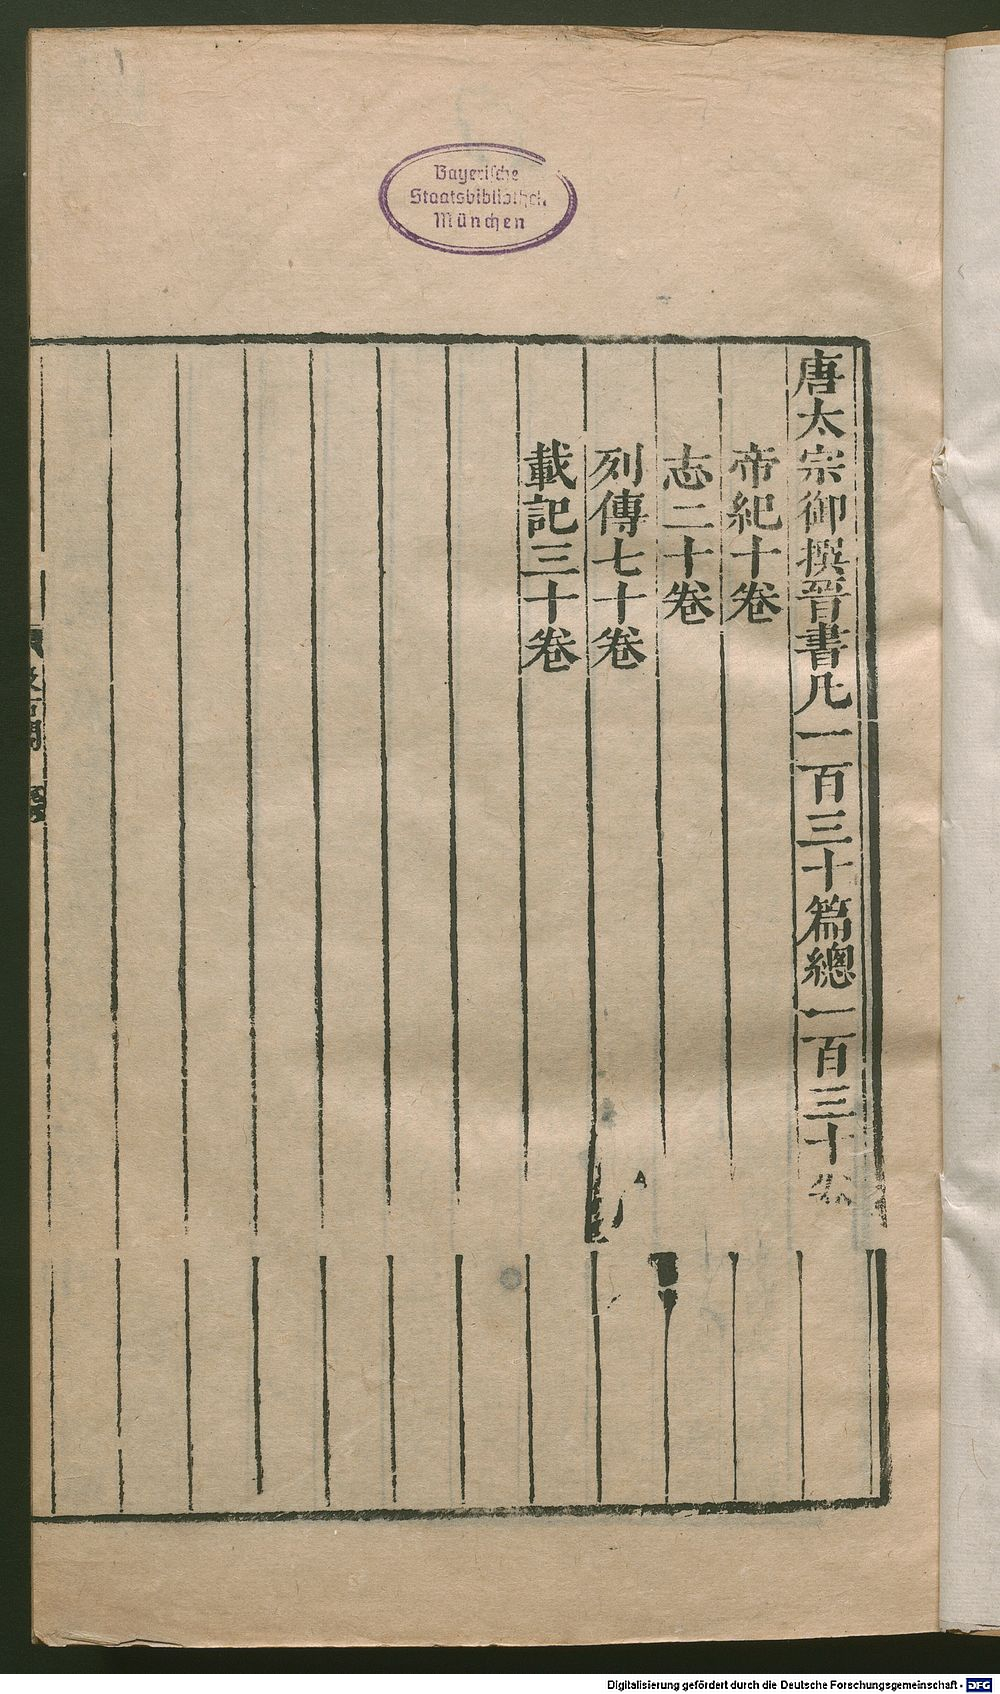 Bayerische
Staatsbibliothek
München
唐太宗御撰晉書凡一百三十篇總一百三十卷
帝紀十卷
志二十卷
列傳七十卷
載記三十卷
Digitalisierung gefördert durch die Deutsche Forschungsgemeinschaft - DFG